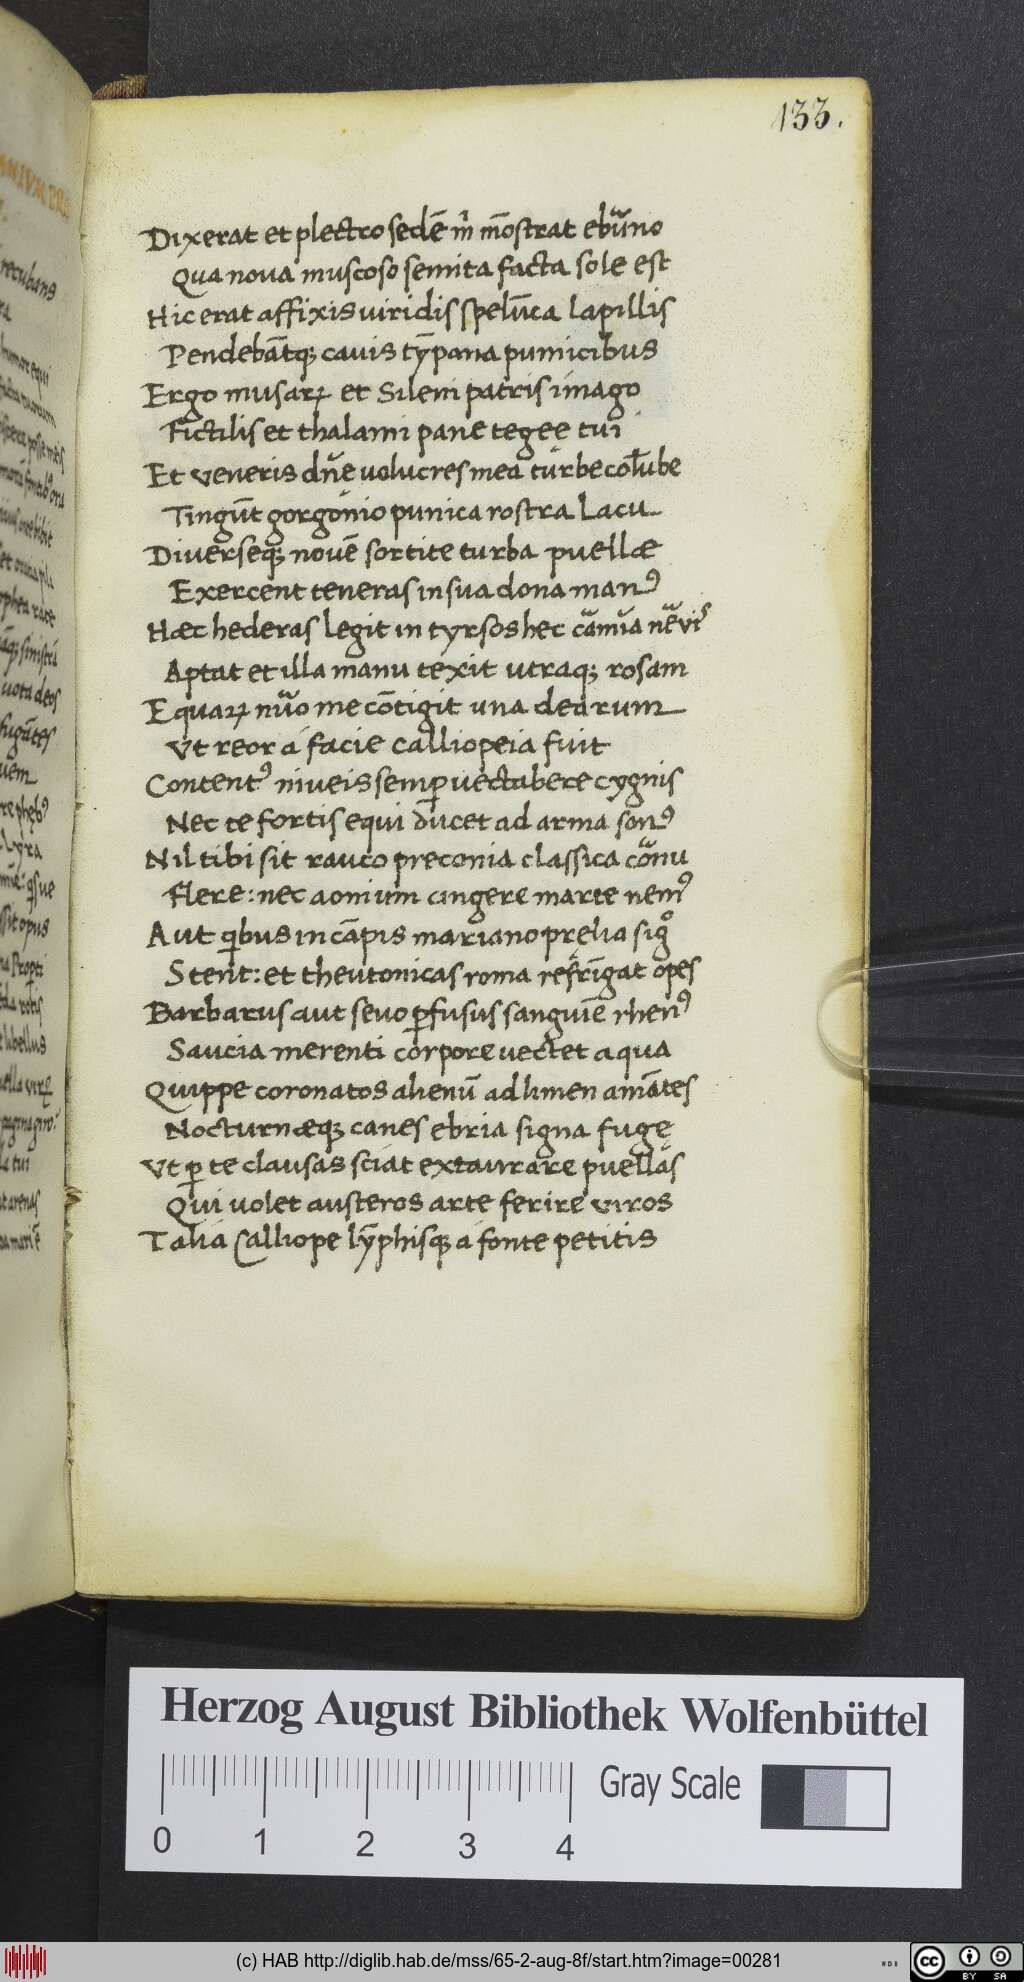 133.
Dixerat et plectro sedē m̄ mōstrat ebůno
Qua nova muscoso semita facta sole est
Hic erat affixis viridis spelūca lapillis
Pendebātq; cavis tȳpana pumicibus
Ergo musarꝝ et Sileni patris imago
Fictilis et thalami pane tegeę tui
Et veneris dn̄e volucres mea turbe colūbe
Tingūt gorgonio punica rostra lacu
Diverseq; novē sortite turba puellæ
Exercent teneras in sua dona manꝰ
Hæc hederas legit in tyrsos hec
Aptat et illa manu texit utraq; rosam
E quarꝝ me cōtigit una dearum
Vt reor á facie calliopeia fuit
Contentꝰ niveis semꝑ vectabere cygnis
Nec te fortis equi ducet ad arma sonꝰ
Nil tibi sit rauco preconia classica
flere: nec aonium cingere marte nemꝰ
Aut qͥbus in cāpis mariano pręlia
Stent: et theutonicas roma refrīgat opes
Barbarus aut sevo ꝑfusus sanguīe rhenꝰ
Saucia merenti corpore vectet aqua
Quippe coronatos alienū ad limen amātes
Nocturnæq; canes ebria signa fugę
Vt ꝑ te clausas sciat extaurare puellas
Qui volet austeros arte ferire viros
Talia Calliope lȳphisq; á fonte petitis
Herzog August Bibliothek Wolfenbüttel
Gray Scale
0 1 2 3 4
(c) HAB http://diglib.hab.de/mss/65-2-aug-8f/start.htm?image=00281
cc BY SA